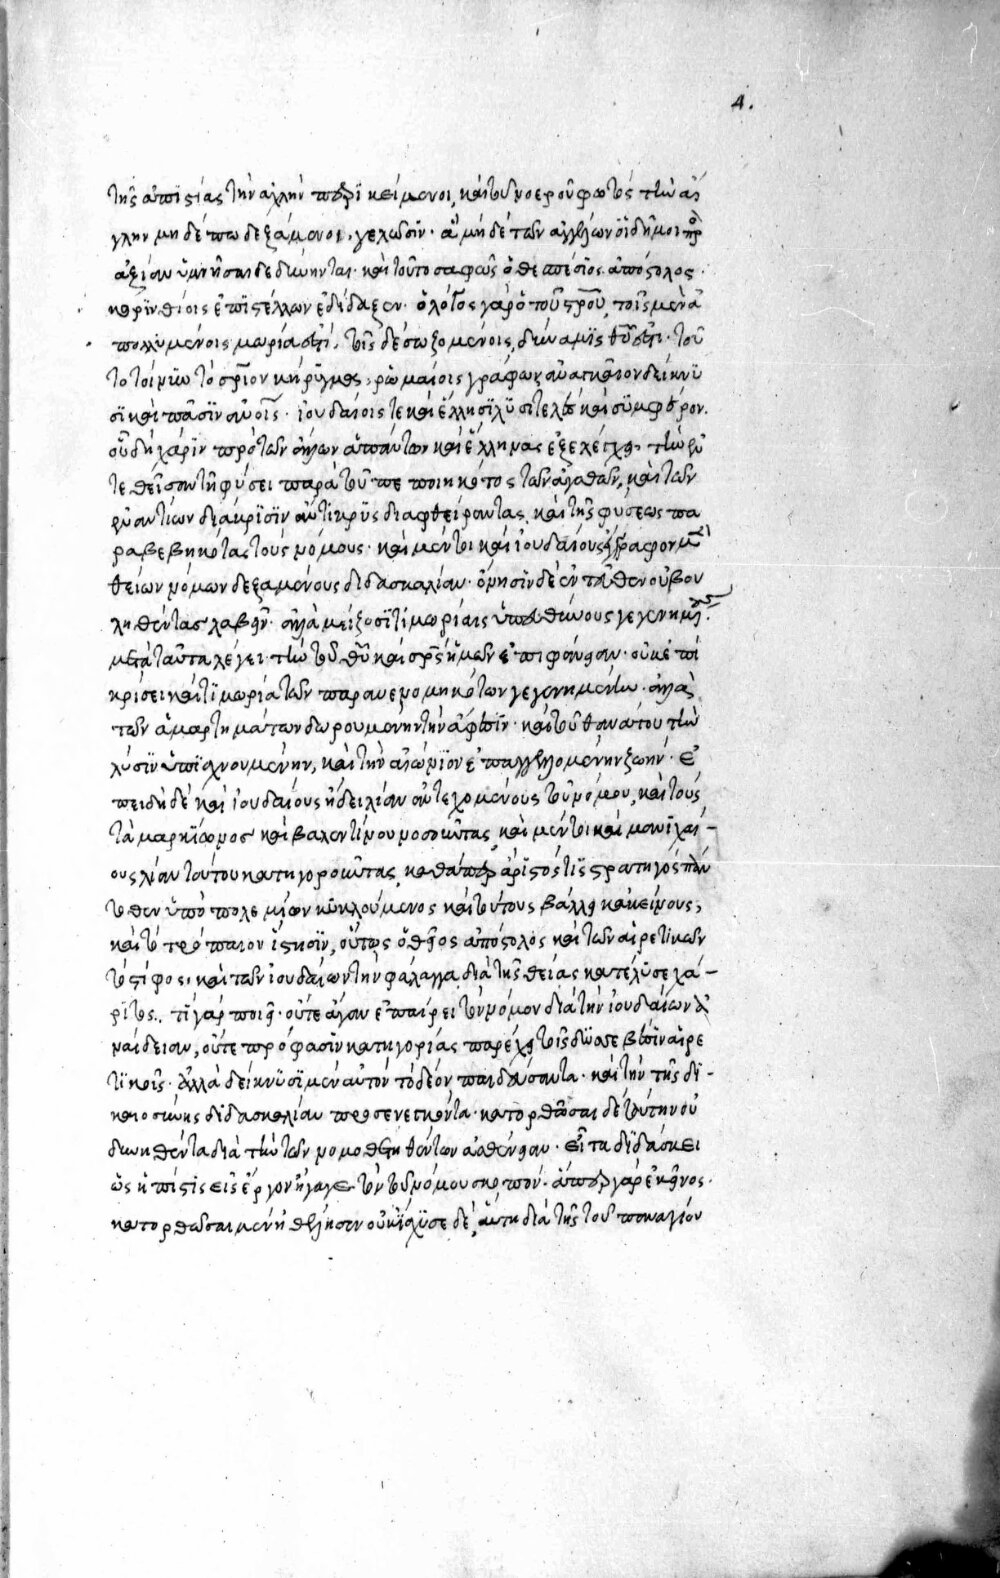 4.
τῆς ἀπιστίας τὴν ἀχλὺν περικείμενοι, καὶ τοῦ νοεροῦ φωτὸς τὴν αἴ
γλην μηδέπω δεξάμενοι, γελῶσιν· ἃ μηδὲ τῶν ἀγγέλων οἱ δῆμοι πρὸς
ἀξίαν ὑμνῆσαι δεδύνηνται· καὶ τοῦτο σαφῶς ὁ θεσπέσιος ἀπόστολος
κορινθίοις ἐπιστέλλων ἐδίδαξεν· ὁ λόγος γὰρ ὁ τοῦ σταυροῦ, τοῖς μὲν ἀ
πολλυμένοις μωρία ἐστί, τοῖς δὲ σωζομένοις, δύναμις θεοῦ ἐστι· τοῦ
το τοίνυν τὸ σωτήριον κήρυγμα, ῥωμαίοις γράφων ἀναγκαῖον δείκνυ
σι καὶ πᾶσιν ἀνοις· ἰουδαίοις τε καὶ ἕλλησι λυσιτελὲς καὶ σύμφορον.
οὗ δὴ χάριν πρὸ τῶν ἄλλων ἁπάντων καὶ ἕλληνας ἐξελέγχει, τὴν ἐν
τεθεῖσαν τῇ φύσει παρὰ τοῦ πεποιηκότος τῶν ἀγαθῶν, καὶ τῶν
ἐναντίων διάκρισιν ἄντικρυς διαφθείροντας, καὶ τῆς φύσεως πα
ραβεβηκότας τοὺς νόμους· καὶ μέντοι καὶ ἰουδαίους ἔγγραφον μὲν
θείων νόμων δεξαμένους διδασκαλίαν· ὄνησιν δὲ ἐντεῦθεν οὐ βου
ληθέντας λαβεῖν· ἀλλὰ μείζοσι τιμωρίαις ὑπευθύνους γεγενημένους.
μετὰ ταῦτα λέγει τὴν τοῦ θεοῦ καὶ σρς ἡμῶν ἐπιφάνειαν· οὐκ ἐπὶ
κρίσει καὶ τιμωρίᾳ τῶν παρανενομηκότων γεγενημένην· ἀλλὰ
τῶν ἁμαρτημάτων δωρουμένην τὴν ἄφεσιν· καὶ τοῦ θανάτου τὴν
λύσιν ὑπισχνουμένην, καὶ τὴν αἰώνιον ἐπαγγελλομένην ζωήν· ἐ
πειδὴ δὲ καὶ ἰουδαίους ᾔδει λίαν ἀντεχομένους τοῦ νόμου, καὶ τοὺς
τὰ μαρκίωνος καὶ βαλεντίνου νοσοῦντας, καὶ μέντοι καὶ μανιχαί-
ους λίαν τούτου κατηγοροῦντας, καθάπερ ἄριστός τις στρατηγὸς πάν
τοθεν ὑπὸ πολεμίων κυκλούμενος καὶ τούτους βάλλει κἀκείνους,
καὶ τὸ τρόπαιον ἵστησιν, οὕτως ὁ θεῖος ἀπόστολος καὶ τῶν αἱρετικῶν
τὸ στίφος, καὶ τῶν ἰουδαίων τὴν φάλαγγα διὰ τῆς θείας κατέλυσε χά-
ριτος.. τί γὰρ ποιεῖ· οὔτε ἄγαν ἐπαίρει τὸν νόμον διὰ τὴν ἰουδαίων ἀ
ναίδειαν, οὔτε πρόφασιν κατηγορίας παρέχει τοῖς δυσσεβέσιν αἱρε
τικοῖς· ἀλλὰ δείκνυσι μὲν αὐτὸν τὸ δέον παιδεύσαντα· καὶ τὴν τῆς δι-
καιοσύνης διδασκαλίαν προσενεγκόντα· κατορθῶσαι δὲ ταύτην οὐ
δυνηθέντα διὰ τὴν τῶν νομοθετηθέντων ἀσθένειαν· εἶτα διδάσκει
ὡς ἡ πίστις εἰς ἔργον ἤγαγε τὸν τοῦ νόμου σκοπόν· ἅπερ γὰρ ἐκεῖνος
κατορθῶσαι μὲν ἠθέλησεν οὐκ ἴσχυσε δέ, αὕτη διὰ τῆς τοῦ παναγίου